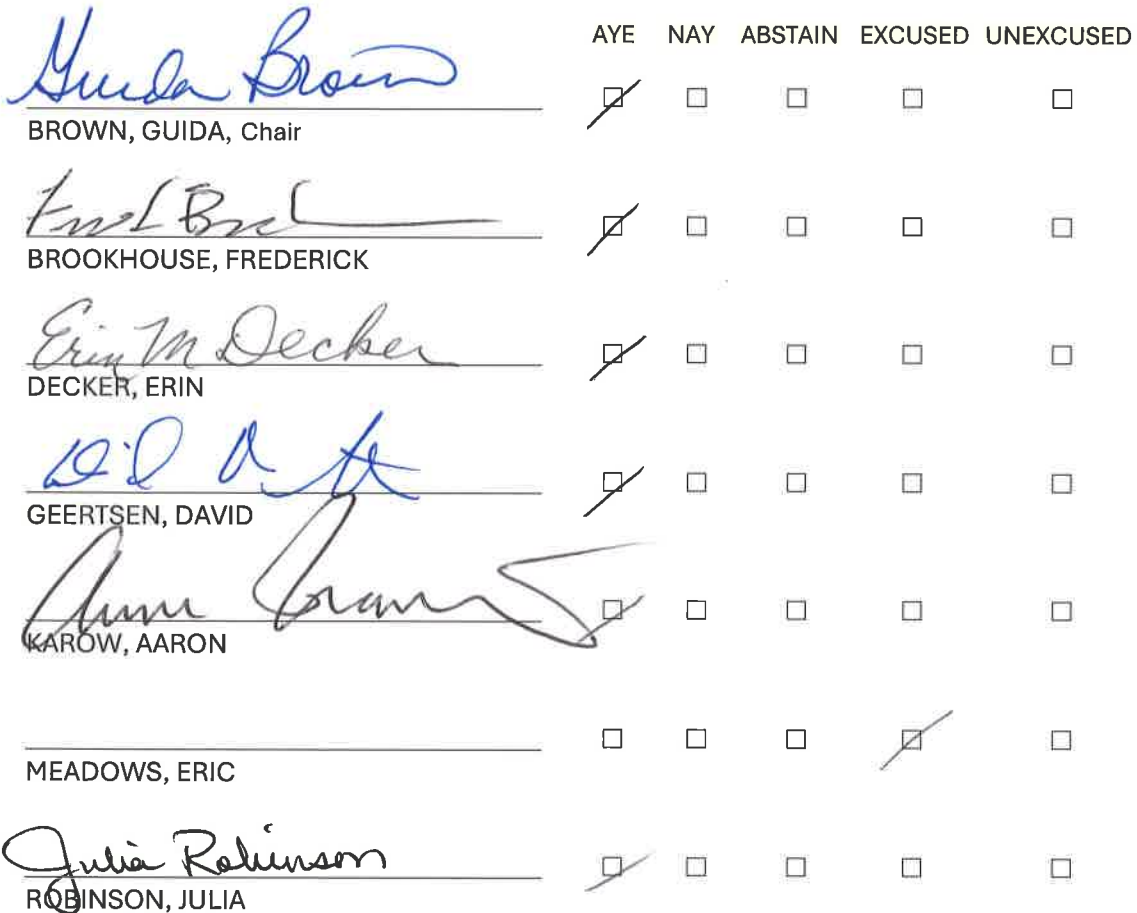 AYE NAY ABSTAIN EXCUSED UNEXCUSED
Guida Brown
BROWN, GUIDA, Chair
BROOKHOUSE, FREDERICK
Erin M Decker
DECKER, ERIN
GEERTSEN, DAVID
KAROW, AARON
MEADOWS, ERIC
Julia Robinson
ROBINSON, JULIA